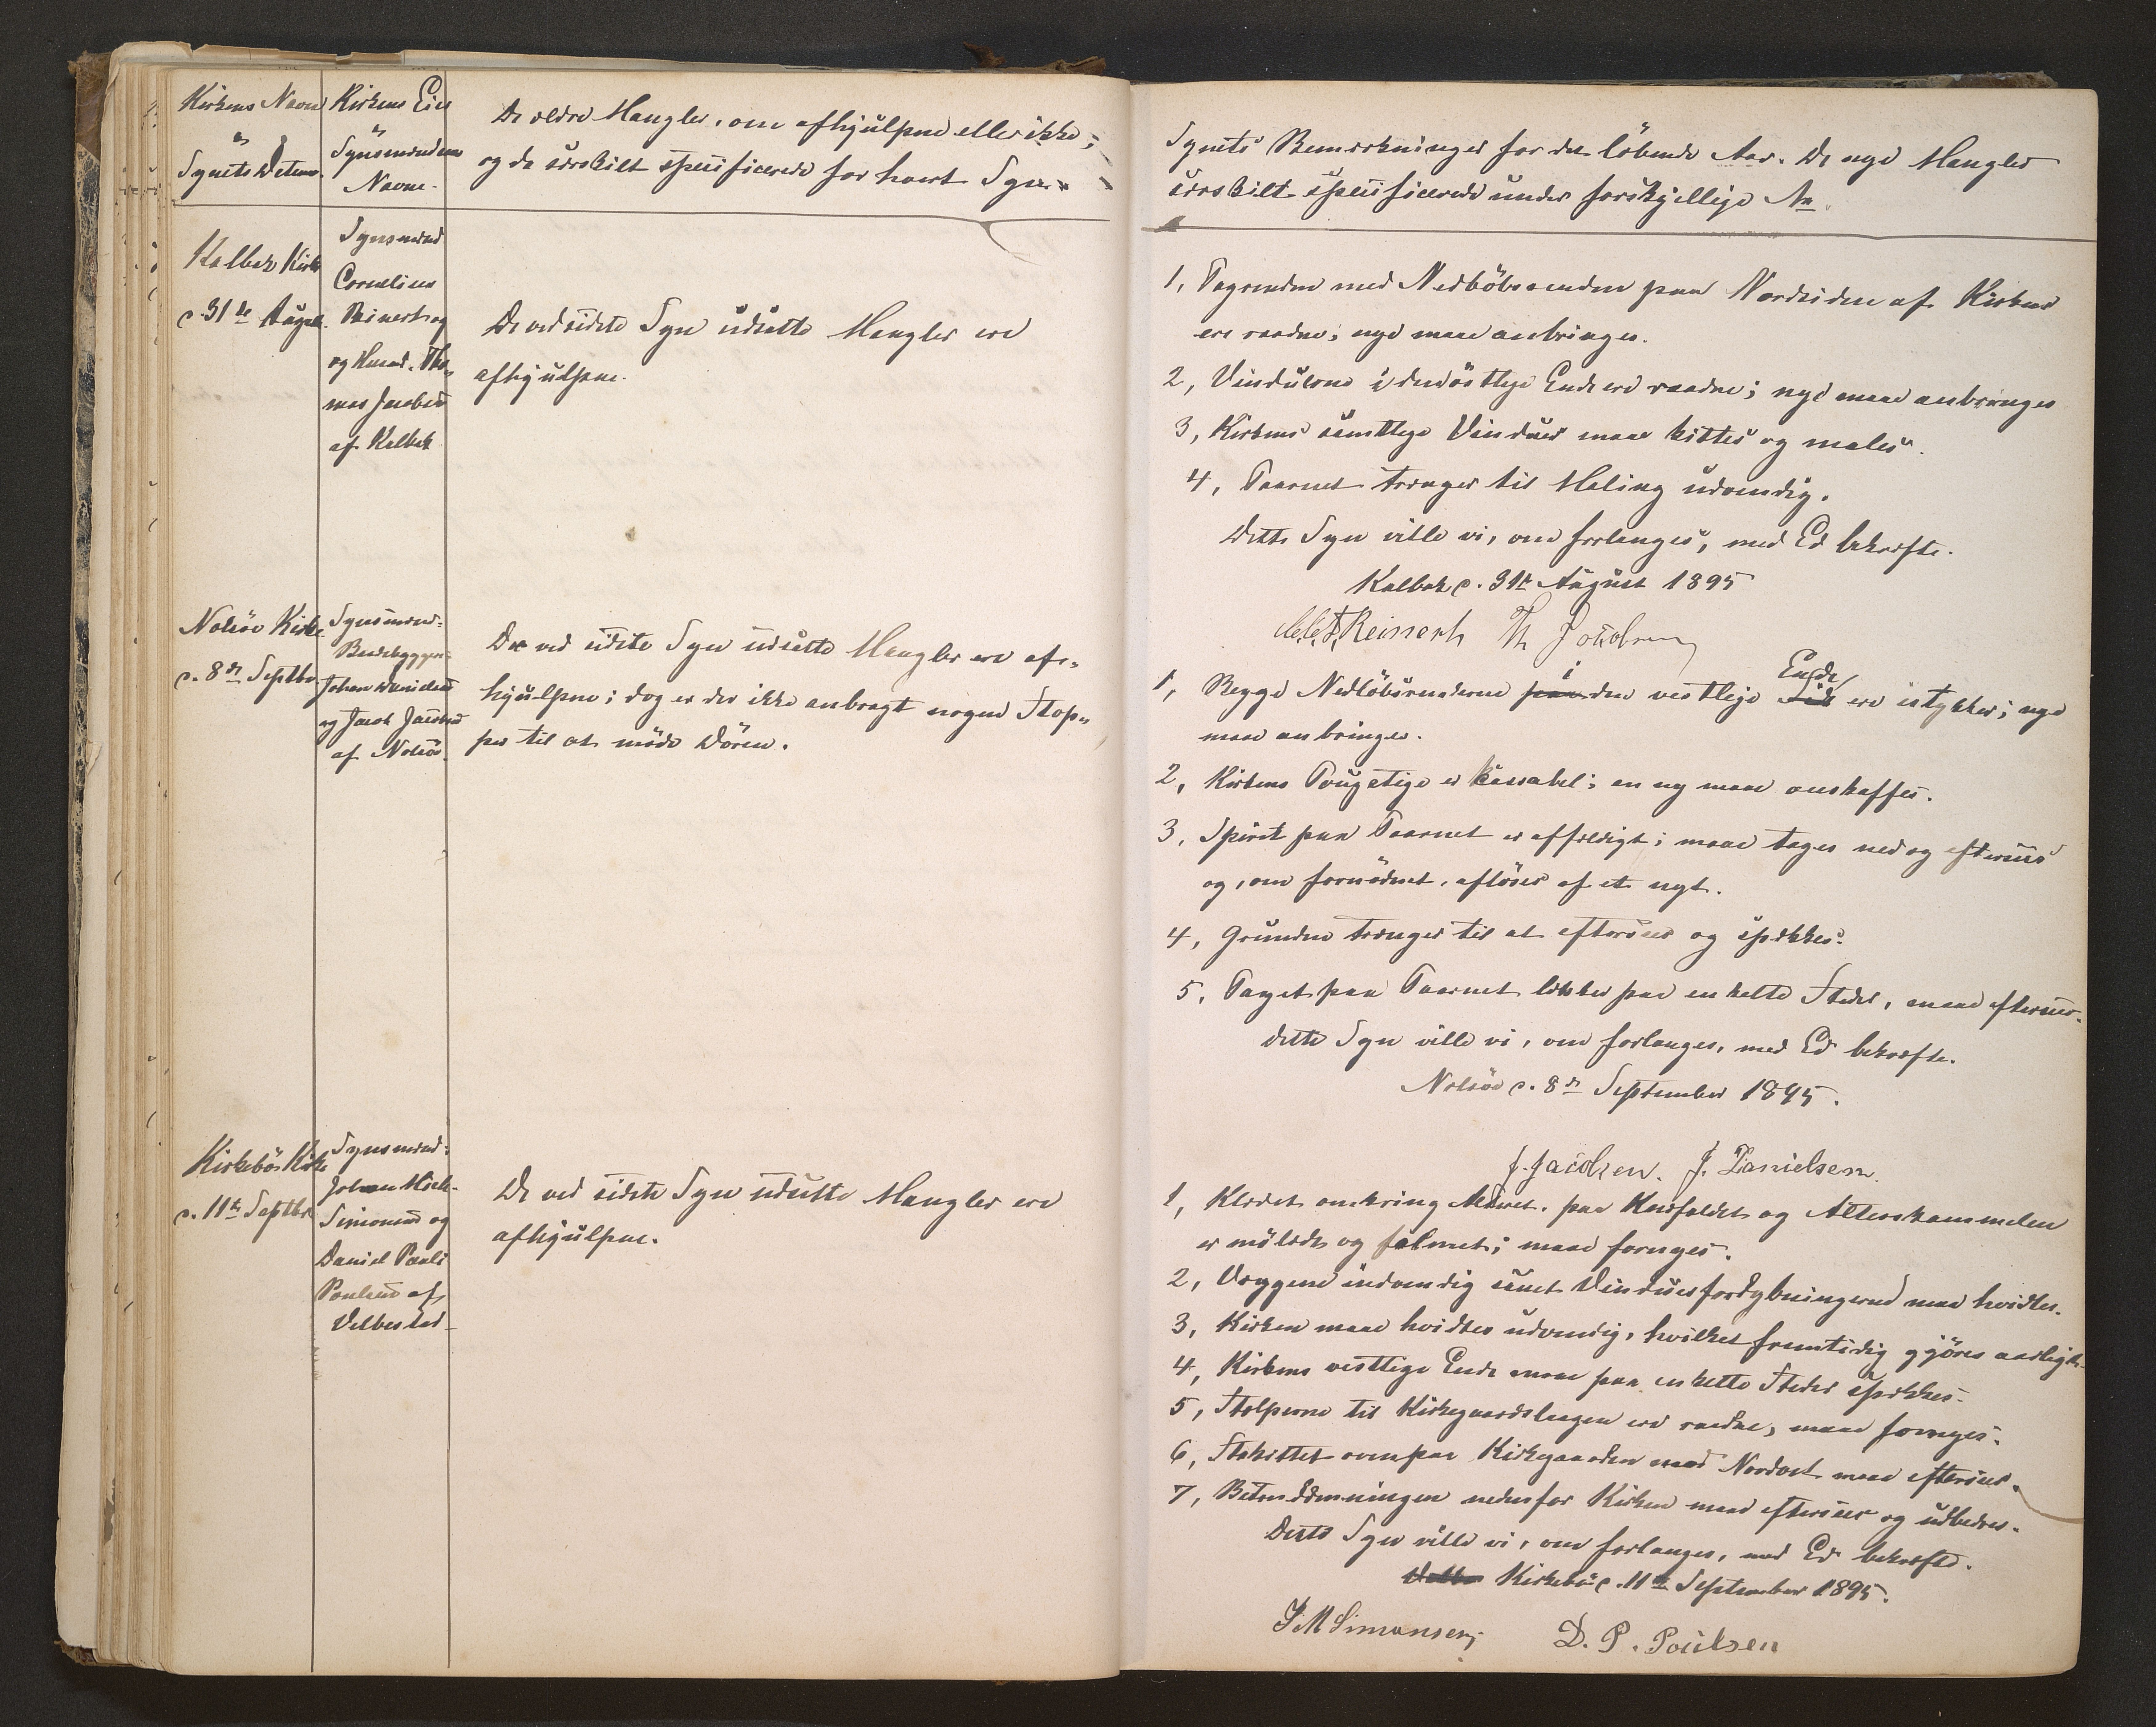 Kirkens Navn
&
Synets Datum.
Kirkens Eier
&
Synsmændenes
Navne.
De ældre Mangler, om afhjulpne eller ikke;
og da særskilt specificerede for hvert Syn.
Kalbak Kirke
d. 31te August.
Synsmænd
Cornelius
Reinert og
og Husmd. Tho-
mas Jacobsen
af Kalbak
De ved sidste Syn udsatte Mangler ere
afhjulpne.
Nolsöe Kirke
d. 8de Septbr.
Synsmænd:
Johan Danielsen
og Jacob Jacobsen
af Nolsö.
De ved sidste Syn udsatte Mangler ere af-
hjulpne; dog er der ikke anbragt nogen Stop-
per til at möde Dören.
Kirkebö Kirke
d. 11te Septbr.
Synsmænd:
Johan Mich.
Simonsen og
Daniel Pauli
Poulsen af
Velbestad
De ved sidste Syn udsatte Mangler ere
afhjulpne.
Synets Bemærkninger for det löbende Aar. De nye Mangler
særskilt specificerede under forskjellige No.
1, Tagrenden med Nedlöbsrenden paa Nordsiden af Kirken
ere raadne; nye maae anbringes.
2, Vinduerne i den östlige Ende ere raadne; nye maae anbringes
3, Kirkens samtlige Vinduer maae kittes og males.
4, Taarnet trænger til Maling udvendig.
Dette Syn ville vi, om forlanges, med Ed bekræfte.
Kalbak d. 31te August 1895
Reinert Th Jacobsen
1, Begge Nedlöbsrenderne paa i den vestlige Side Ende ere istykker; nye
maae anbringes.
2, Kirkens Tougstige er kassabel; en ny maae anskaffes.
3, Spiret paa Taarnet er affældigt; maae tages ned og efterses
og, om fornödent, aflöses af et nyt.
4, Grunden trænger til at efterses og spækkes.
5, Taget paa Taarnet lækker paa enkelte Steder, maae efterses.
Dette Syn ville vi, om forlanges, med Ed bekræfte.
Nolsöe d. 8de September 1895.
J. Jacobsen. J. Danielsen.
1, Klædet omkring Alteret, paa Knæfaldet og Alterskammelen
er mölædt og falmet; maae fornyes.
2, Væggene indvendig samt Vinduesfordybningerne maae hvidtes.
3, Kirken maae hvidtes udvendig, hvilket fremtidig gjöres aarligt.
4, Kirkens vestlige Ende maae paa enkelte Steder spækkes.
5, Stolperne til Kirkegaardslaagen ere raadne, maae fornyes.
6, Stakittet ovenpaa Kirkegaarden mod Nordost maae efterses.
7, Betondæmningen nedenfor Kirken maae efterses og udbedres.
Dette Syn ville vi, om forlanges, med Ed bekræfte.
Kirkebö d. 11te September 1895.
J M Simonsen, D. P. Poulsen